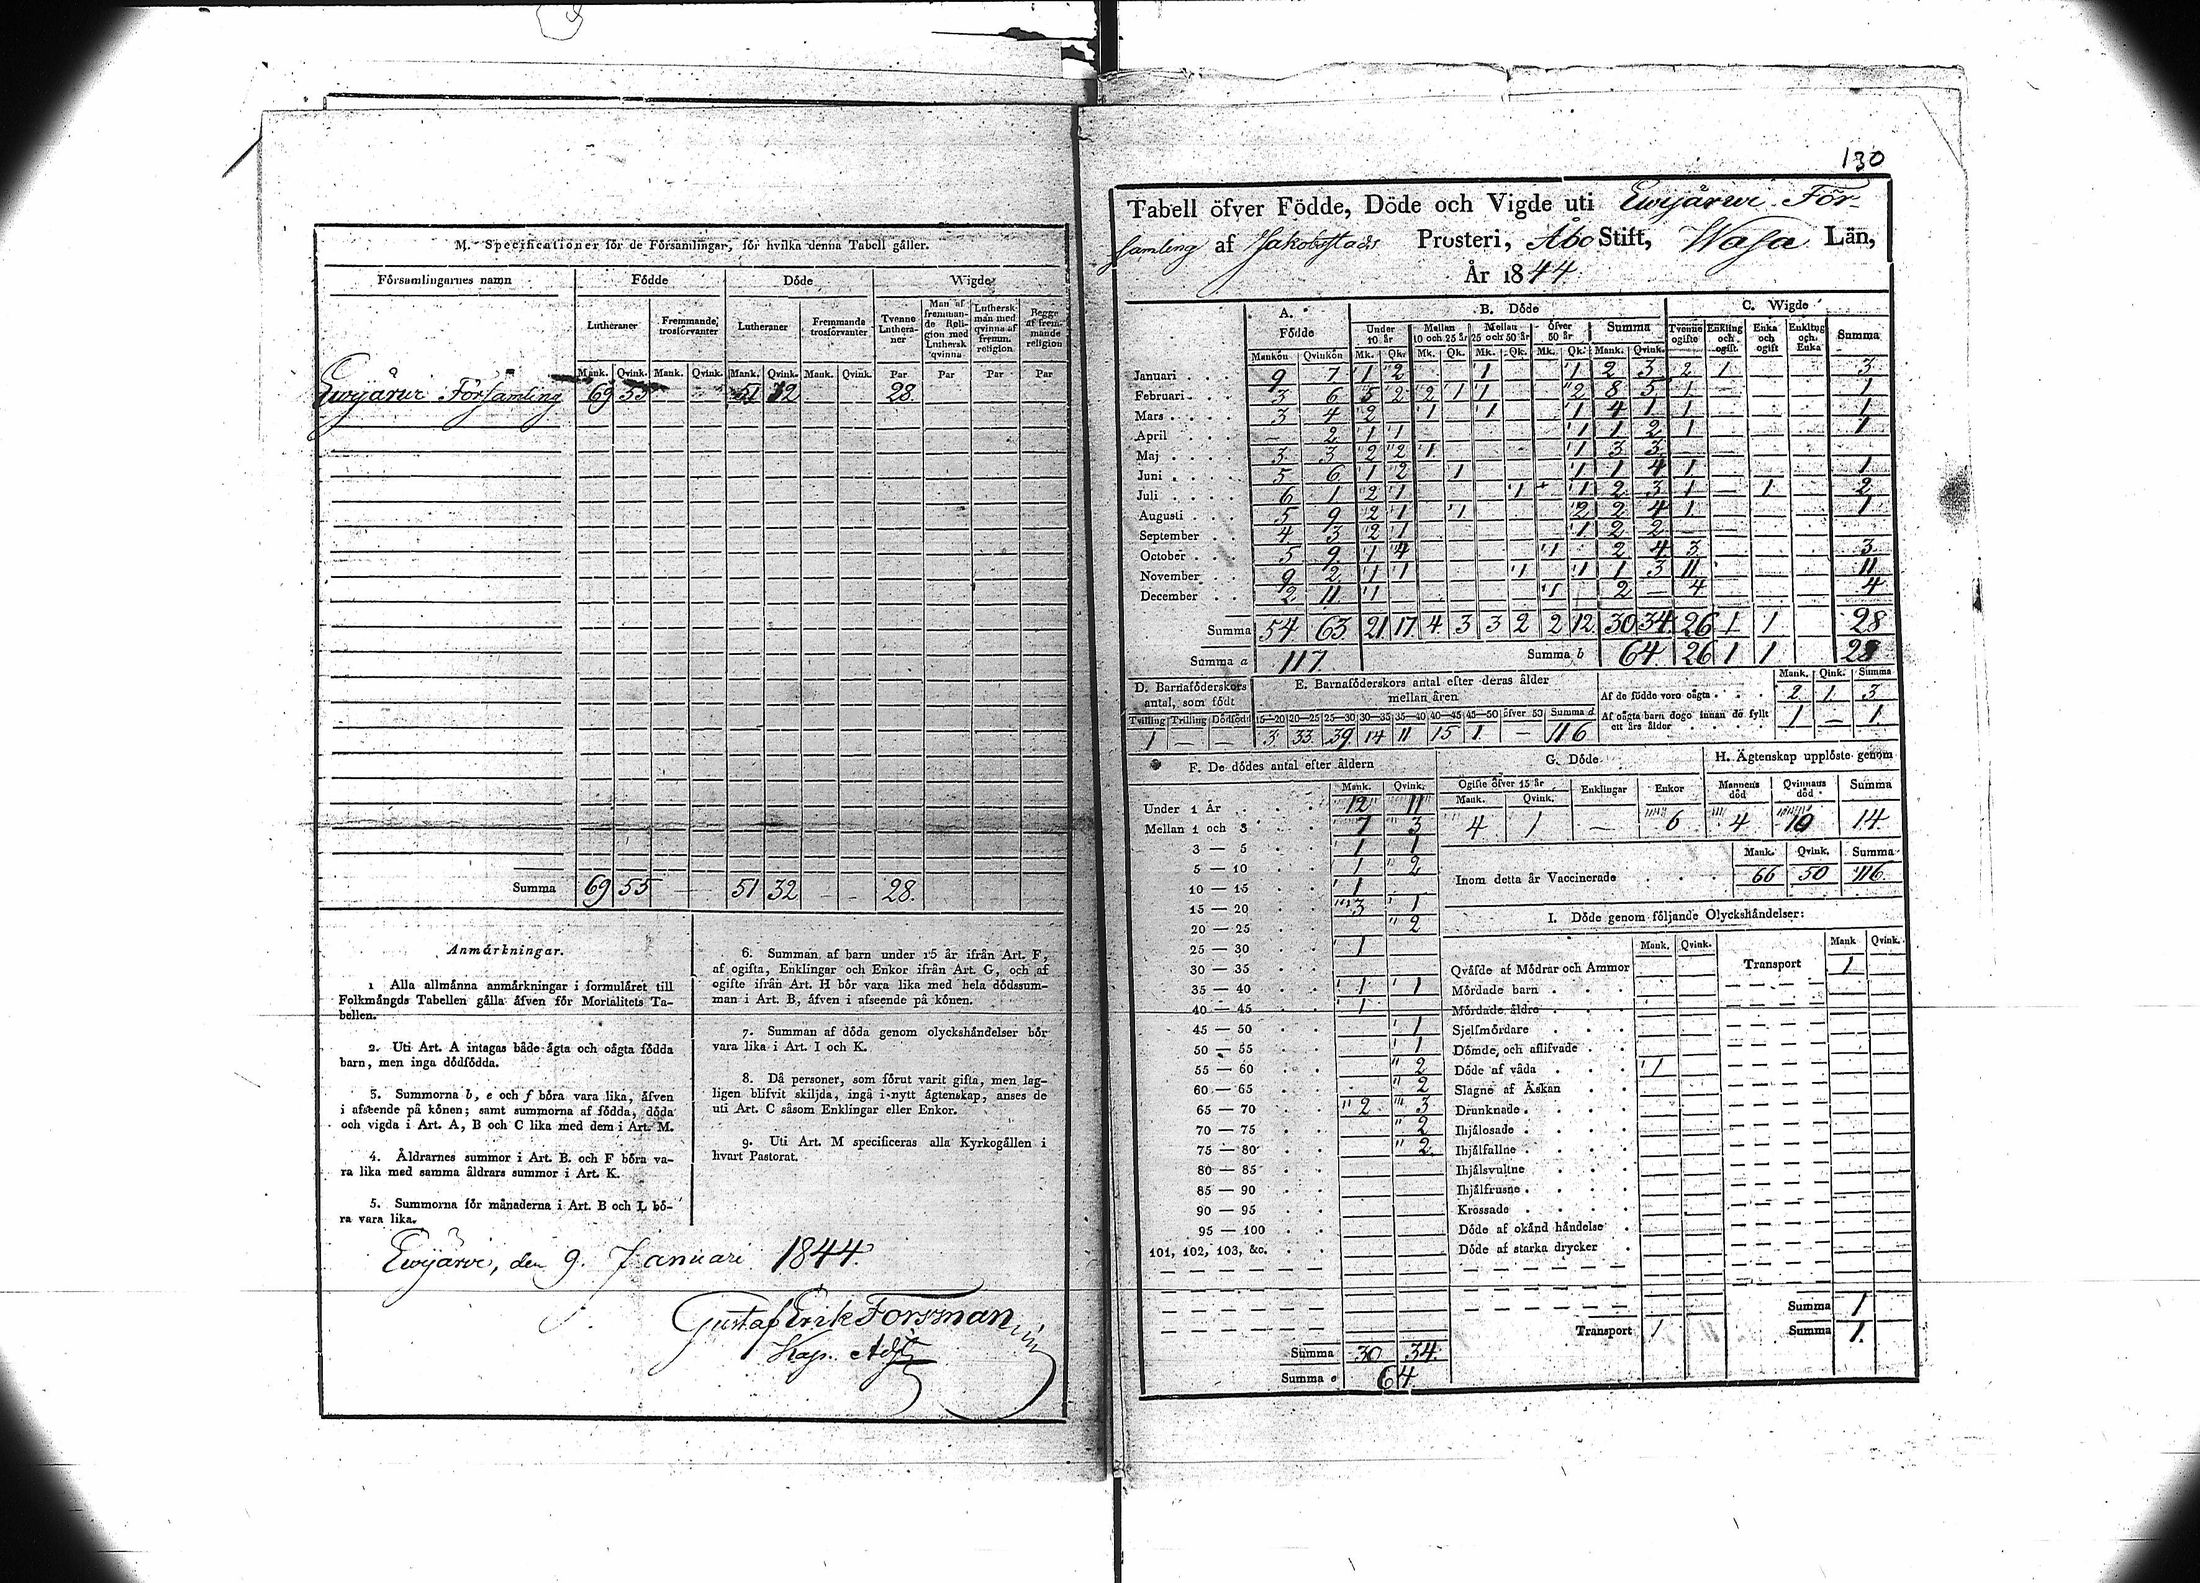 M. Specificationer för de Församlingar, för hvilka denna Tabell gäller.
Församlingarnes namn Födde Döde Wigde
Lutheraner Fremmande trosförvanter Lutheraner Fremmande trosförvanter Tvenne Lutheraner Man af fremmande Religion med Luthersk qvinna Luthersk man med qvinna af fremm. religion Begge af fremmande religion
Mank. Qvink. Mank. Qvink. Mank. Qvink. Mank. Qvink. Par Par Par Par
Ewijärwi Församling 69 55 51 32 28.
Summa 69 55 — 51 32 - - 28.
Anmärkningar.
1 Alla allmänna anmärkningar i formuläret till
Folkmängds Tabellen gälla äfven för Mortalitets Ta-
bellen.
2. Uti Art. A intagas både ägta och oägta födda
barn, men inga dödfödda.
3. Summorna b, e och f böra vara lika, äfven
i afseende på könen; samt summorna af födda, döda
och vigda i Art. A, B och C lika med dem i Art. M.
4. Åldrarnes summor i Art. B. och F böra va-
ra lika med samma åldrars summor i Art. K.
5. Summorna för månaderna i Art. B och L bö-
ra vara lika.
6. Summan af barn under 15 år ifrån Art. F,
af ogifta, Enklingar och Enkor ifrån Art. G, och af
ogifte ifrån Art. H bör vara lika med hela dödssum-
man i Art. B, äfven i afseende på könen.
7. Summan af döda genom olyckshändelser bör
vara lika i Art. I och K.
8. Då personer, som förut varit gifta, men lag-
ligen blifvit skiljda, ingå i nytt ägtenskap, anses de
uti Art. C såsom Enklingar eller Enkor.
9. Uti Art. M specificeras alla Kyrkogällen i
hvart Pastorat.
Ewijärwi, den 9. Januari 1844.
Gustaf Erik Forsman
Kap. Adj.
130
Tabell öfver Födde, Döde och Vigde uti Ewijärwi För-
samling af Jakobstads Prosteri, Åbo Stift, Wasa Län,
År 1844.
A. Födde B. Döde C. Wigde
Under 10 år Mellan 10 och 25 år Mellan 25 och 50 år Öfver 50 år Summa Tvenne ogifte Enkling och ogift Enka och ogift Enkling och Enka Summa
Mankön Qvinkön Mk. Qk. Mk. Qk. Mk. Qk. Mk. Qk. Mank. Qvink.
Januari 9 7 1 2 1 1 2 3 2 1 3
Februari 3 6 5 2 2 1 1 2 8 5 1 — 1
Mars 3 4 2 1 1 1 4 1 1 1
April — 2 1 1 1 1 2 1 1
Maj 3 3 2 2 1 1 3 3
Juni 5 6 1 2 1 1 1 4 1 1
Juli 6 1 2 1 1 1 2 3 1 — 1 2
Augusti 5 9 2 1 1 2 2 4 1 1
September 4 3 2 1 1 2 2 —
October 5 9 1 4 1 2 4 3 3
November 9 2 1 1 1 1 1 3 11 11
December 2 11 1 1 2 — 4 4
Summa 54 63 21 17 4 3 3 2 2 12 30 34 26 1 1 28
Summa a 117. Summa b 64 26 1 1 28
D. Barnaföderskors antal, som födt
Tvilling Trilling Dödfödd
1 — —
E. Barnaföderskors antal efter deras ålder
mellan åren
15—20 20—25 25—30 30—35 35—40 40—45 45—50 öfver 50 Summa d
3 33 39 14 11 15 1 — 116
Mank. Qink. Summa
Af de födde voro oägta 2 1 3
Af oägta barn dogo innan de fyllt
ett års ålder 1 — 1
F. De dödes antal efter åldern
Mank. Qvink.
Under 1 År 12 11
Mellan 1 och 3 7 3
3 — 5 1 1
5 — 10 1 2
10 — 15 1
15 — 20 3 1
20 — 25 2
25 — 30 1
30 — 35
35 — 40 1 1
40 — 45 1
45 — 50 1
50 — 55 1
55 — 60 2
60 — 65 2
65 — 70 2 3
70 — 75 2
75 — 80 2
80 — 85
85 — 90
90 — 95
95 — 100
101, 102, 103, &c.
Summa 30 34.
Summa e 64
G. Döde
Ogifte öfver 15 år Enklingar Enkor
Mank. Qvink.
4 1 — 6
H. Ägtenskap upplöste genom
Mannens död Qvinnans död Summa
4 10 14
Mank. Qvink. Summa
Inom detta år Vaccinerade 66 50 116
I. Döde genom följande Olyckshändelser:
Mank. Qvink. Mank Qvink.
Qväfde af Mödrar och Ammor Transport 1
Mördade barn
Mördade äldre
Sjelfmördare
Dömde, och aflifvade
Döde af våda 1
Slagne af Åskan
Drunknade
Ihjälosade
Ihjälfallne
Ihjälsvultne
Ihjälfrusne
Krossade
Döde af okänd händelse
Döde af starka drycker
Summa 1
Transport 1 Summa 1.